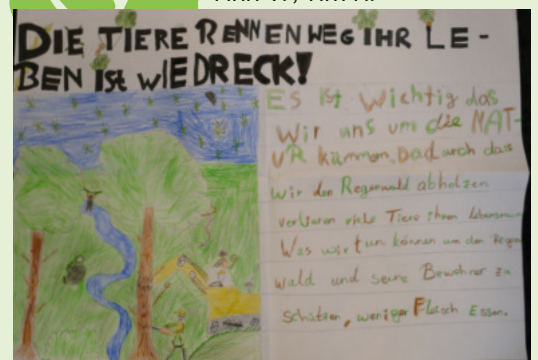 DIE TIERE RENNEN WEG IHR LE-
BEN ist WIE DRECK!
ES ist Wichtig das
Wir uns um die NAT-
UR kümmen. Dad urch das
wir den Regenwald abholzen
verliaren viele Tiere ihren
Was wir tun können um den
wald und seine Bewohner zu
schützen, weniger Fleisch Essen.